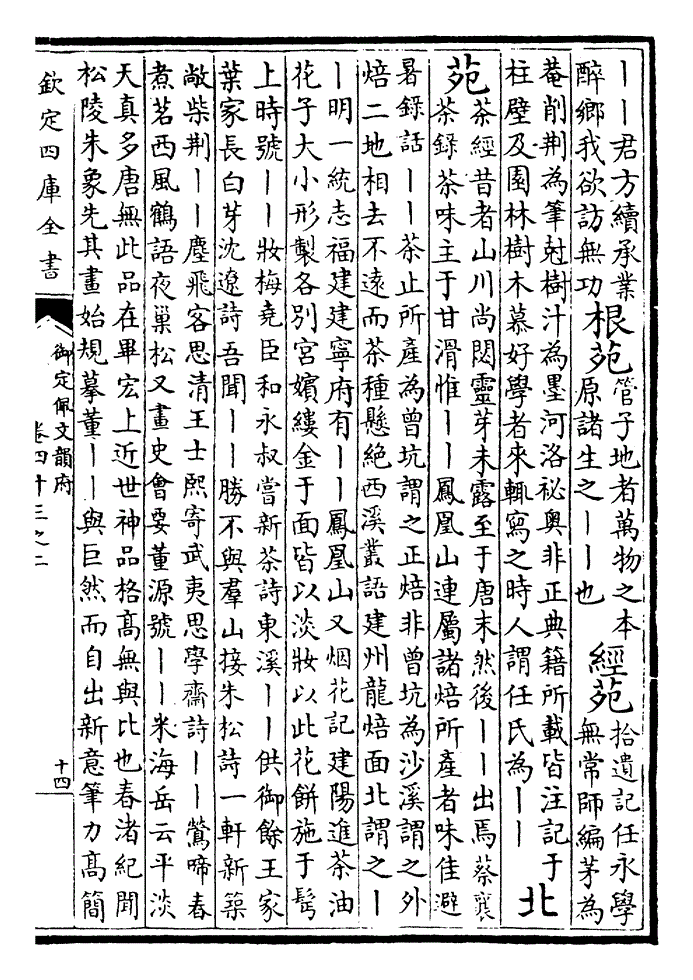 丨丨君方續承業
醉鄉我欲訪無功
根苑
管子地者萬物之本
原諸生之丨丨也
經苑
拾遺記任永學
無常師編茅為
菴削荆為筆尅樹汁為墨河洛祕奥非正典籍所載皆注記于
柱壁及園林樹木慕好學者來輒寫之時人謂任氏為丨丨
北
苑
茶經昔者山川尚閟靈芽未露至于唐末然後丨丨出焉蔡襄
茶錄茶味主于甘滑惟丨丨鳳凰山連屬諸焙所產者味佳避
暑錄話丨丨茶止所產為曾坑謂之正焙非曾坑為沙溪謂之外
焙二地相去不遠而茶種懸絶西溪叢語建州龍焙面北謂之丨
丨明一統志福建建寧府有丨丨鳳凰山又烟花記建陽進茶油
花子大小形製各別宫嬪縷金于面皆以淡妝以此花餅施于髩
上時號丨丨妝梅堯臣和永叔嘗新茶詩東溪丨丨供御餘王家
葉家長白芽沈遼詩吾聞丨丨勝不與羣山接朱松詩一軒新築
敞柴荆丨丨塵飛客思清王士熙寄武夷思學齋詩丨丨鶯啼春
煮茗西風鶴語夜巢松又畫史會要董源號丨丨米海岳云平淡
天真多唐無此品在畢宏上近世神品格髙無與比也春渚紀聞
松陵朱象先其畫始規摹董丨丨與巨然而自出新意筆力髙簡
欽定四庫全書
御定佩文韻府
卷四十三之二
十四